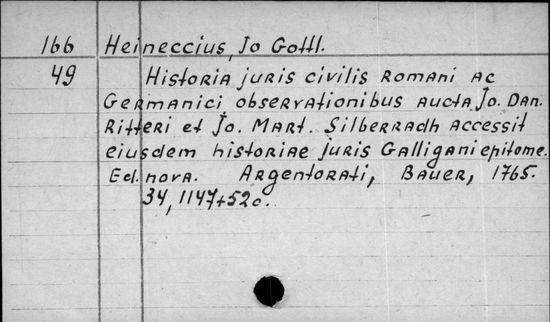 166 Heineccius, Jo Gottl.
49 Historia juris civilis Romani ac
Germanici observationibus aucta Jo. Dan.
Ritteri et Jo. Mart. Silberradh accessit
eiusdem historiae juris Galligani epitome.
Ed. nova. Argentorati, Bauer, 1765.
34, 1147+52 c.